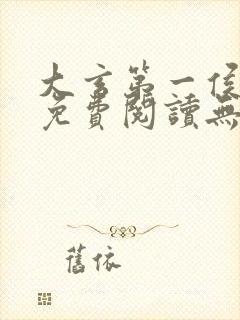 大言第一侯
免費閱讀無
舊依